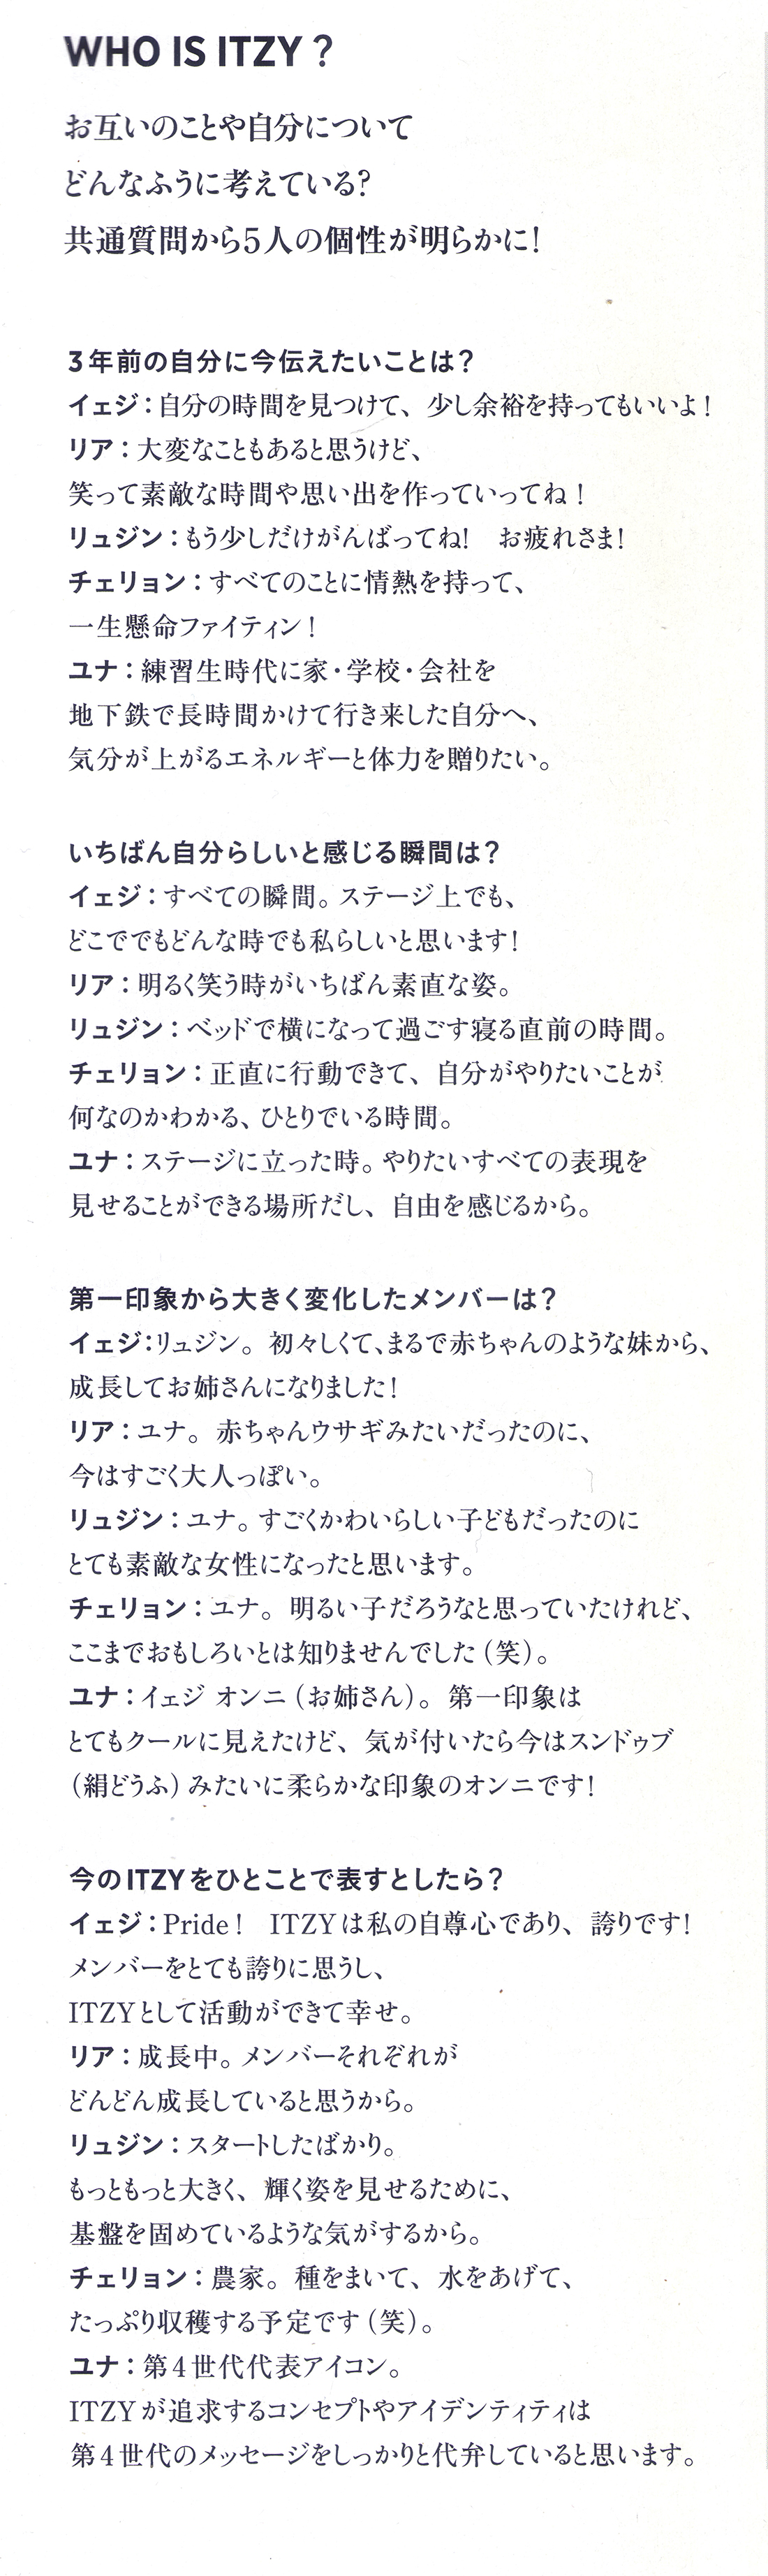 WHO IS ITZY ?
お互いのことや自分について
どんなふうに考えている?
共通質問から5人の個性が明らかに!
3年前の自分に今伝えたいことは?
イェジ：自分の時間を見つけて、少し余裕を持ってもいいよ!
リア：大変なこともあると思うけど、
笑って素敵な時間や思い出を作っていってね!
リュジン：もう少しだけがんばってね!　お疲れさま!
チェリョン：すべてのことに情熱を持って、
一生懸命ファイティン!
ユナ：練習生時代に家・学校・会社を
地下鉄で長時間かけて行き来した自分へ、
気分が上がるエネルギーと体力を贈りたい。
いちばん自分らしいと感じる瞬間は?
イェジ：すべての瞬間。ステージ上でも、
どこででもどんな時でも私らしいと思います!
リア：明るく笑う時がいちばん素直な姿。
リュジン：ベッドで横になって過ごす寝る直前の時間。
チェリョン：正直に行動できて、自分がやりたいことが
何なのかわかる、ひとりでいる時間。
ユナ：ステージに立った時。やりたいすべての表現を
見せることができる場所だし、自由を感じるから。
第一印象から大きく変化したメンバーは?
イェジ：リュジン。初々しくて、まるで赤ちゃんのような妹から、
成長してお姉さんになりました!
リア：ユナ。赤ちゃんウサギみたいだったのに、
今はすごく大人っぽい。
リュジン：ユナ。すごくかわいらしい子どもだったのに
とても素敵な女性になったと思います。
チェリョン：ユナ。明るい子だろうなと思っていたけれど、
ここまでおもしろいとは知りませんでした（笑）。
ユナ：イェジ オンニ（お姉さん）。第一印象は
とてもクールに見えたけど、気が付いたら今はスンドゥブ
（絹どうふ）みたいに柔らかな印象のオンニです!
今のITZYをひとことで表すとしたら?
イェジ：Pride!　ITZYは私の自尊心であり、誇りです!
メンバーをとても誇りに思うし、
ITZYとして活動ができて幸せ。
リア：成長中。メンバーそれぞれが
どんどん成長していると思うから。
リュジン：スタートしたばかり。
もっともっと大きく、輝く姿を見せるために、
基盤を固めているような気がするから。
チェリョン：農家。種をまいて、水をあげて、
たっぷり収穫する予定です（笑）。
ユナ：第4世代代表アイコン。
ITZYが追求するコンセプトやアイデンティティは
第4世代のメッセージをしっかりと代弁していると思います。